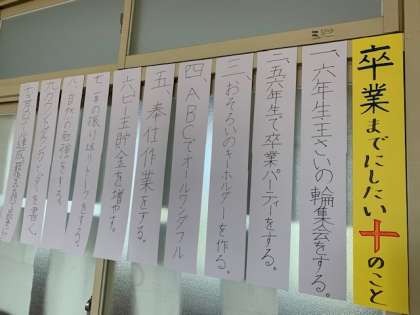 卒業までにしたい十のこと
一、六年生主さいの輪集会をする。
二、五六年生で卒業パーティをする。
三、おそろいのキーホルダーを作る。
四、ABCでオールワンダフル
五、奉仕作業をする。
六、ビー玉貯金を増やす。
七、年の振り返りトークをする。
八、自然の勉強をする。